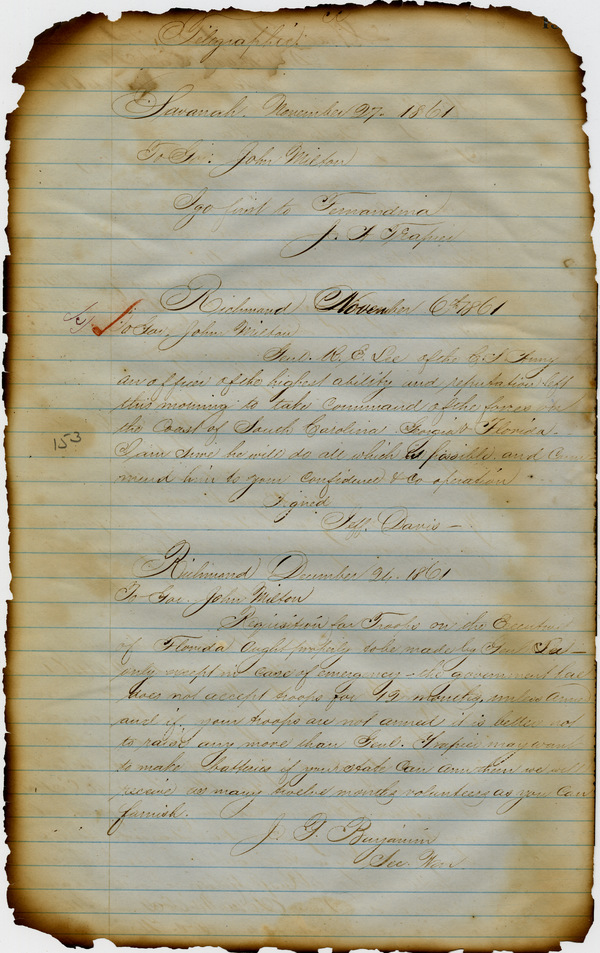 Telegraphic
Savanah. November 27. 1861
To Gov. John Milton
I go first to Fernandina
J. H. Trapier
Richmond November 6th 1861
To Gov. John Milton
Genl. R. E. Lee of the C. S. Army
an officer of the highest ability and reputation left
this morning to take command of the forces on
the Coast of South Carolina Georgia & Florida.
153
I am sure he will do all which is possible, and com
mend him to your Confidence & Co operation
Signed
Jeff. Davis
Richmond December 1861
To Gov. John Milton
Requisition for Troops on the Executive
of Florida ought properly to be made by Genl Lee
only except in case of emergency — the government
does not accept troops for 12 months, unless armed
and if your troops are not armed it is better not
to raise any more than Genl. Trapier may want
to make batteries if your state can arm them we will
receive as many twelve months volunteers as you can
furnish.
J. P. Benjamin
Sec. War